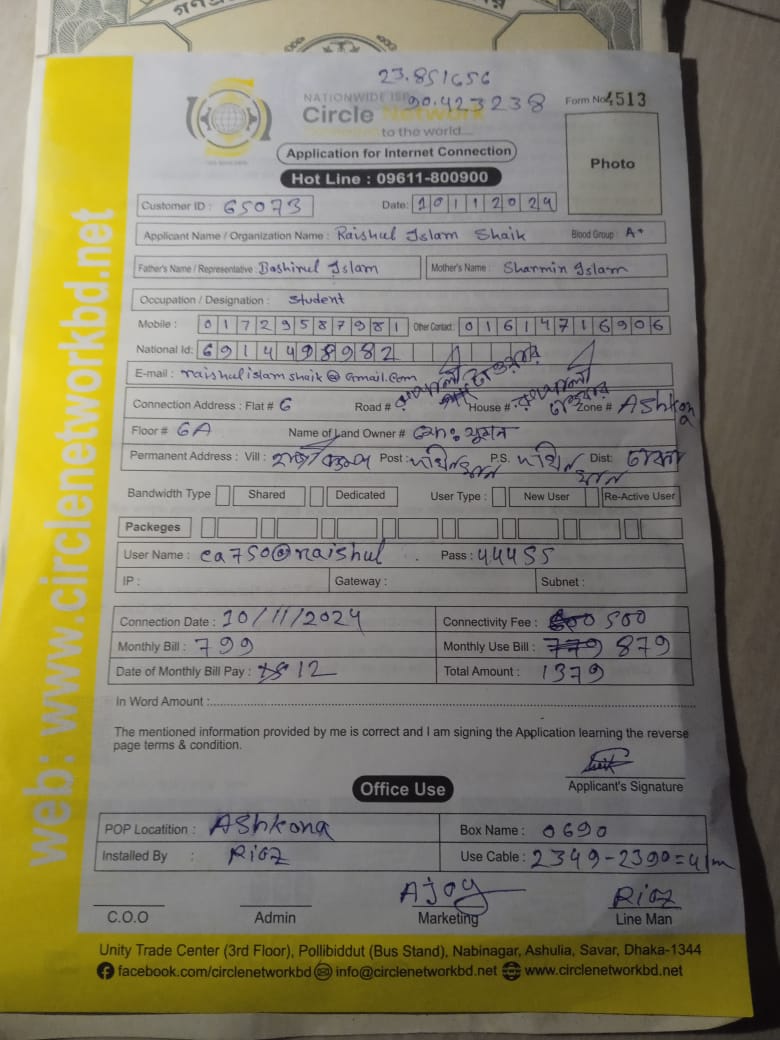 23.851656
90.423238
NATIONWIDE ISP
Circle Network
Connecting to the world...
Form No. 4513
Application for Internet Connection
Photo
Hot Line : 09611-800900
Customer ID : 65073 Date: 10112024
Applicant Name / Organization Name : Raishul Islam Shaik Blood Group : A+
Father's Name / Representative : Bashirul Islam Mother's Name : Sharmin Islam
Occupation / Designation : Student
Mobile : 01729587981 Other Contact : 01614716906
National Id: 6914498982
E-mail : raishulislamshaik@Gmail.Com
Connection Address : Flat # 6 Road # রূপালী টাওয়ার House # রূপালী টাওয়ার Zone # Ashkona
Floor # 6A Name of Land Owner # মোঃ
Permanent Address : Vill : Post : দক্ষিনখান P.S. দক্ষিনখান Dist: ঢাকা
Bandwidth Type Shared Dedicated User Type : New User Re-Active User
Packeges
User Name : ca750@raishul Pass : 44455
IP : Gateway : Subnet :
Connection Date : 10/11/2024 Connectivity Fee : 500
Monthly Bill : 799 Monthly Use Bill : 779 879
Date of Monthly Bill Pay : 12 Total Amount : 1379
In Word Amount :
The mentioned information provided by me is correct and I am signing the Application learning the reverse
page terms & condition.
Applicant's Signature
Office Use
POP Locatition : Ashkona Box Name : 0690
Installed By : Riaz Use Cable : 2349-2390=41m
Ajoy Riaz
C.O.O Admin Marketing Line Man
Unity Trade Center (3rd Floor), Pollibiddut (Bus Stand), Nabinagar, Ashulia, Savar, Dhaka-1344
facebook.com/circlenetworkbd info@circlenetworkbd.net www.circlenetworkbd.net
web: www.circlenetworkbd.net